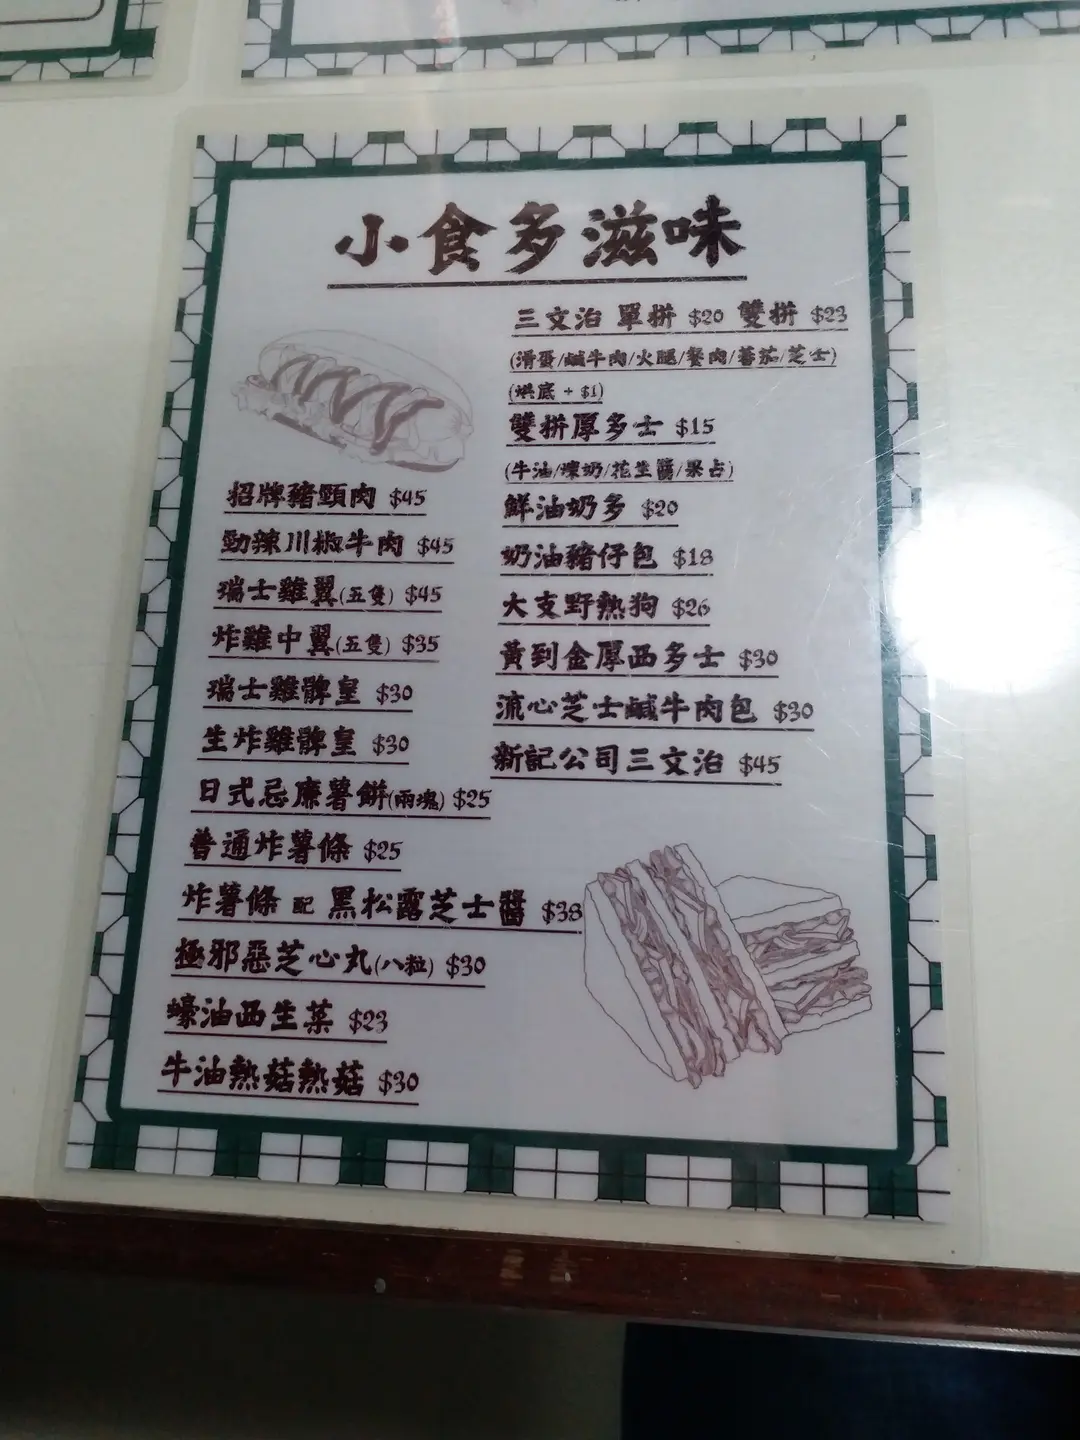 小食多滋味
三文治 單拼 $20 雙拼 $23
(滑蛋/鹹牛肉/火腿/餐肉/蕃茄/芝士)
(烘底 + $1)
雙拼厚多士 $15
(牛油/煉奶/花生醬/果占)
鮮油奶多 $20
奶油豬仔包 $18
大支野熱狗 $26
黃到金厚西多士 $30
流心芝士鹹牛肉包 $30
新記公司三文治 $45
招牌豬頸肉 $45
勁辣川椒牛肉 $45
瑞士雞翼(五隻) $45
炸雞中翼(五隻) $35
瑞士雞髀皇 $30
生炸雞髀皇 $30
日式忌廉薯餅(兩塊) $25
普通炸薯條 $25
炸薯條 配 黑松露芝士醬 $38
極邪惡芝心丸(八粒) $30
蠔油西生菜 $23
牛油熱菇熱菇 $30